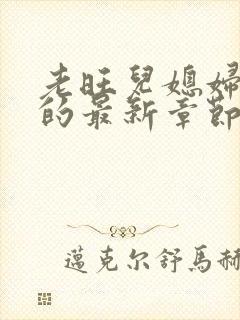 老旺兒媳婦
的最新章節
邁克尔舒馬赫